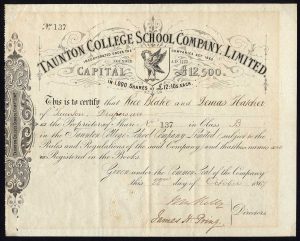 No 137
TAUNTON COLLEGE SCHOOL COMPANY, LIMITED.
INCORPORATED UNDER THE COMPANIES ACT 1862
CAPITAL £12,500.
IN 1,000 SHARES OF £12:10s EACH.
This is to certify that Blake and Hatcher
of Taunton Drapers
is the Proprietor of Share No. 137 in Class B
in the Taunton College School Company Limited, subject to the
Rules and Regulations of the said Company, and that name
Registered in the Books.
Given under the Common Seal of the Company
this 22nd day of October 1867
James H.
Directors